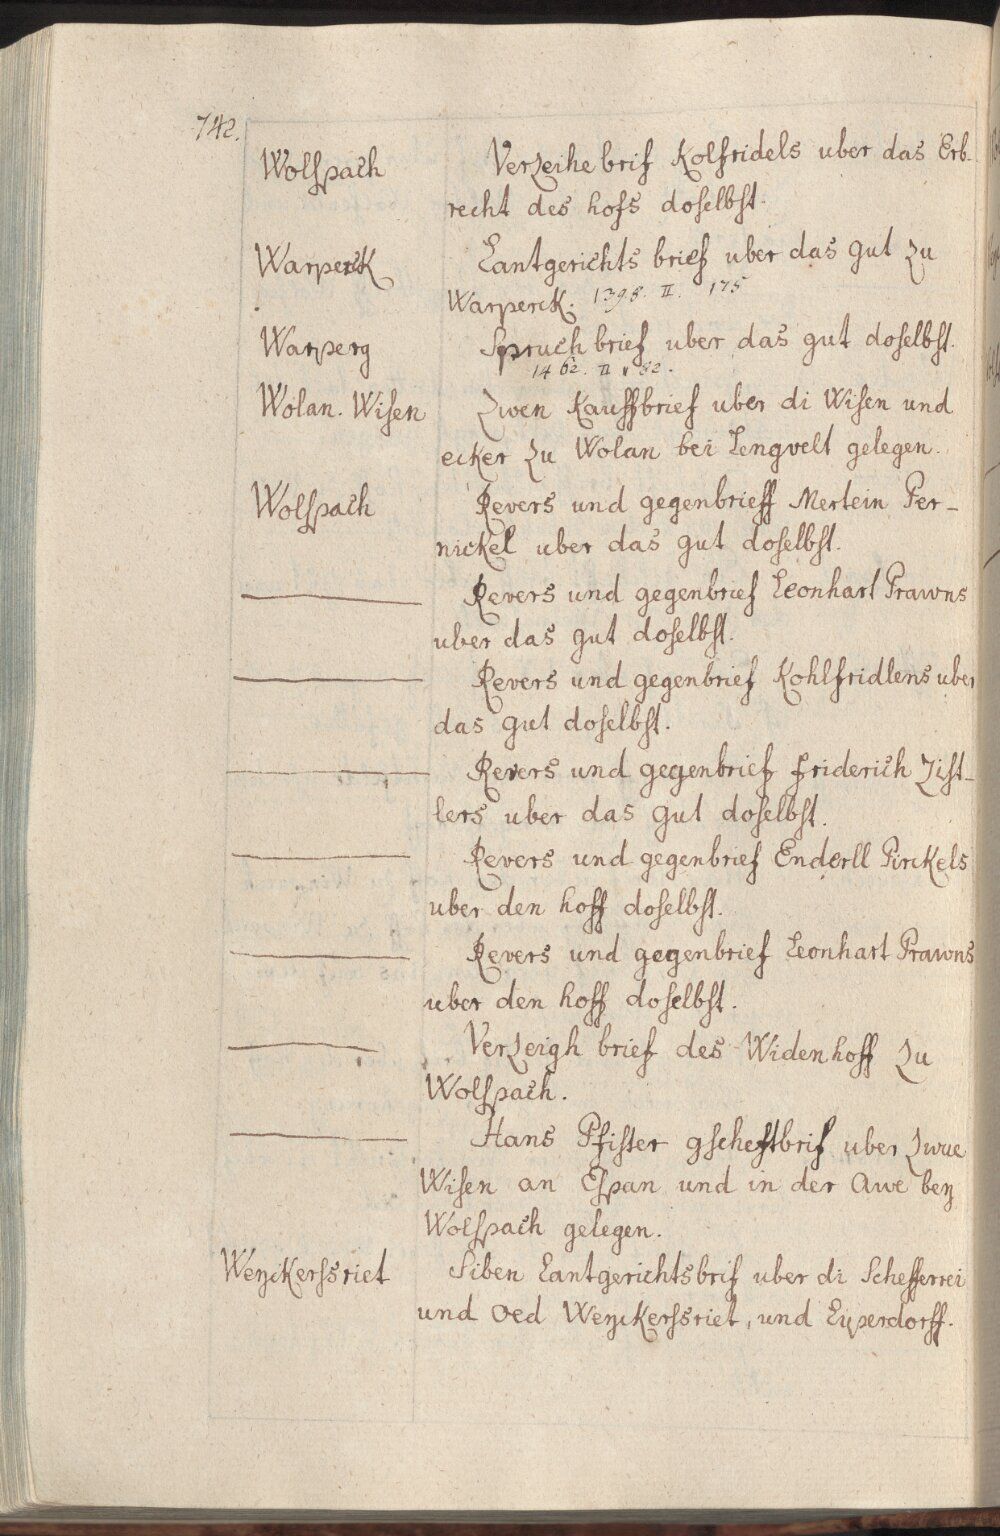 742.
Wolfspach Verzeihe brif Kolfridels uber das Erb-
recht des hofs doselbst.
Warperck Lantgerichts brief uber das gut zu
Warperck. 1398. II. 175
Warperg Spruch brief uber das gut doselbst.
1462. II 82.
Wolan. Wisen Zwen Kauffbrief uber di Wisen und
ecker zu Wolan bei Lengvelt gelegen.
Wolfspach Revers und gegenbrieff Mertein Per-
nickel uber das gut doselbst.
Revers und gegenbrief Leonhart Prawns
uber das gut doselbst.
Revers und gegenbrief Kohlfridlens uber
das gut doselbst.
Revers und gegenbrief friderich Zist-
lers uber das gut doselbst.
Revers und gegenbrief Enderll Pirckels
uber den hoff doselbst.
Revers und gegenbrief Leonhart Prawns
uber den hoff doselbst.
Verzeigh brief des Widenhoff zu
Wolfspach.
Hans Pfister gscheftbrif uber zwue
Wisen an Espan und in der Awe bey
Wolfspach gelegen.
Weyckersriet Siben Lantgerichtsbrif uber di Schefferrei
und Oed Weyckersriet, und Eyperdorff.